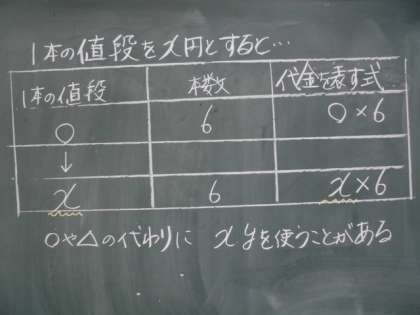 1本の値段をx円とすると…
1本の値段 本数 代金を表す式
○ 6 ○×6
↓
x 6 x×6
○や△の代わりに x yを使うことがある